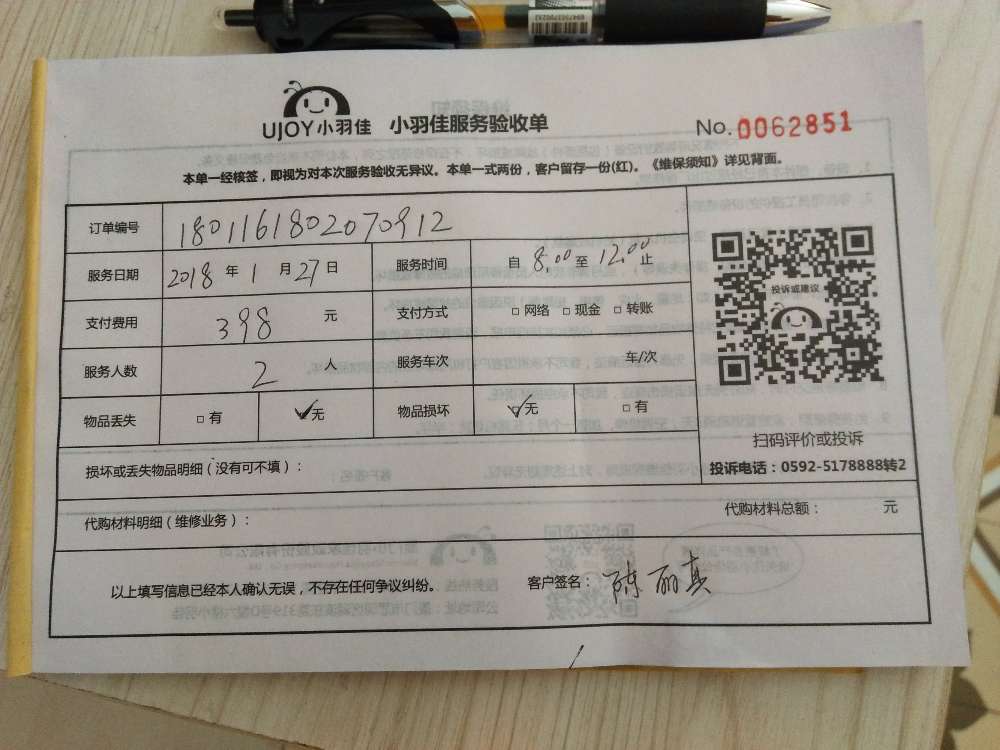 UJOY小羽佳 小羽佳服务验收单 No.0062851
本单一经核签，即视为对本次服务验收无异议。本单一式两份，客户留存一份(红)。《维保须知》详见背面。
订单编号 1801161802070912
服务日期 2018 年 1 月 27 日 服务时间 自 8:00 至 12:00 止
支付费用 398 元 支付方式 □ 网络 □ 现金 □ 转账
服务人数 2 人 服务车次 车/次
物品丢失 □ 有 ☑无 物品损坏 ☑无 □ 有
投诉或建议
扫码评价或投诉
投诉电话：0592-5178888转2
损坏或丢失物品明细（没有可不填）：
代购材料明细（维修业务）： 代购材料总额： 元
以上填写信息已经本人确认无误，不存在任何争议纠纷。 客户签名：陈丽真